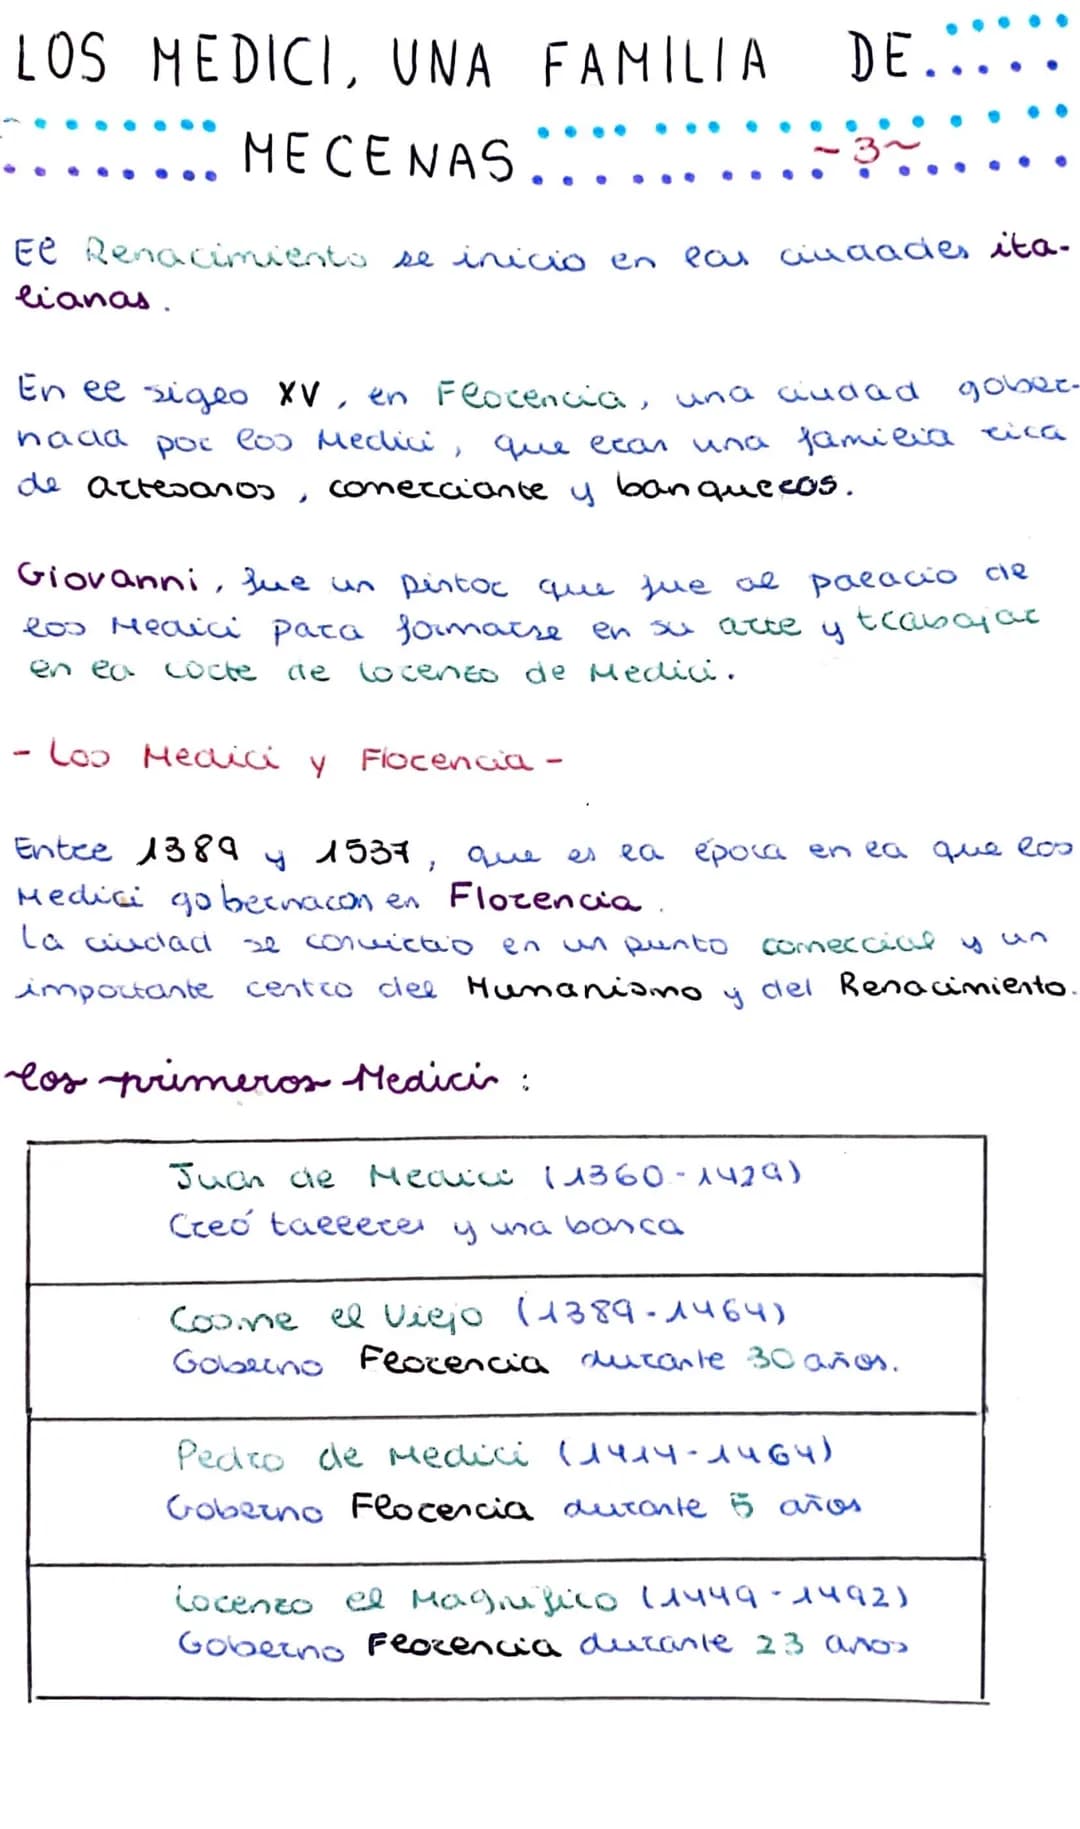 LOS MEDICI, UNA FAMILIA DE
MECENAS
~3~
El Renacimiento se inicio en las ciudades ita-
lianas.
En el siglo XV, en Florencia, una ciudad gober-
nada por los Medici, que eran una familia rica
de artesanos, comerciante y banqueros.
Giovanni, fue un pintor que fue al palacio de
los Medici para formarse en su arte y trabajar
en la corte de Lorenzo de Medici.
- Los Medici y Florencia -
Entre 1389 y 1537, que es la época en la que los
Medici gobernaron en Florencia.
La ciudad se convirtió en un punto comercial y un
importante centro del Humanismo y del Renacimiento.
los primeros Medicis :
Juan de Medici (1360-1429)
Creó talleres y una banca
Cosme el Viejo (1389-1464)
Goberno Florencia durante 30 años.
Pedro de Medici (1414-1464)
Goberno Florencia durante 5 años
Lorenzo el Magnifico (1449-1492)
Goberno Florencia durante 23 años